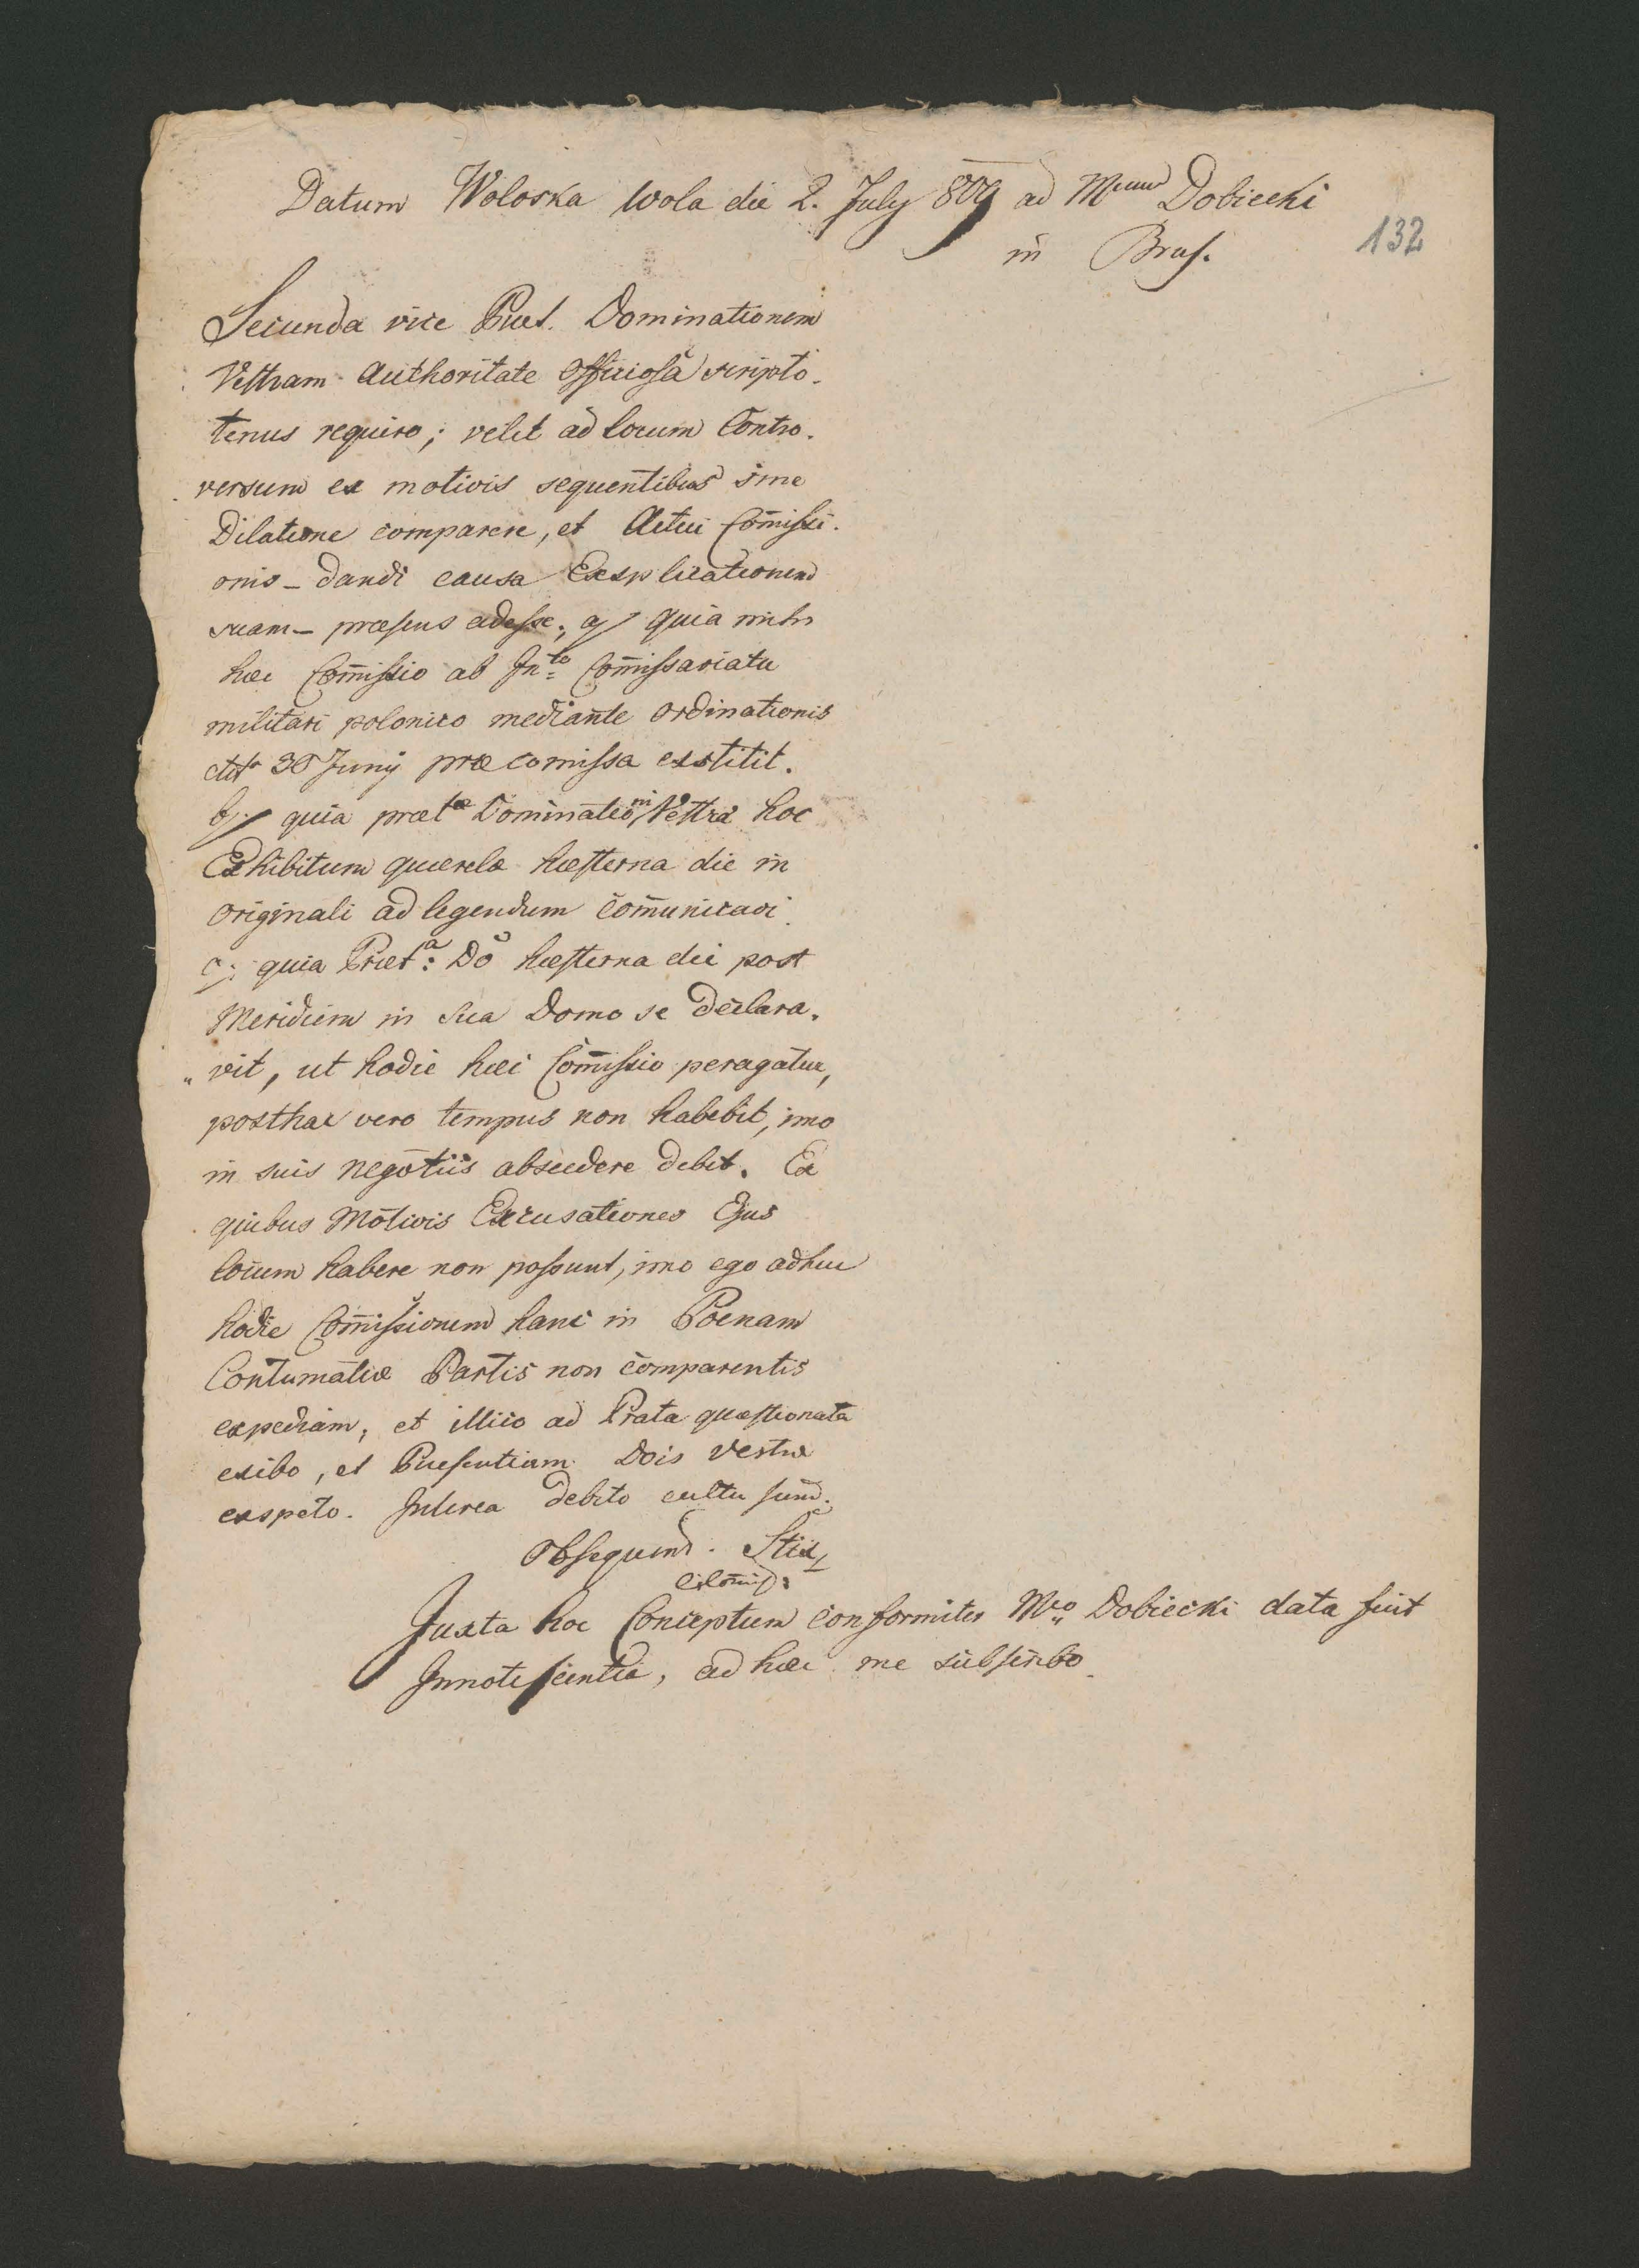 Datum Woloska Wola die 2. July 809 ad Mcum Dobiecki
in Brus.
132
Secunda vice Præt. Dominationem
Vestram Authoritate officiosa scripto-
tenus requiro; velit ad locum Contro-
versum ex motivis sequentibus sine
Dilatione comparere, et Actui Com̄issi-
onis - dandi causa Explicationem
suam - præsens adesse; a/ quia mihi
hæc Com̄issio ab In.to Com̄issariatu
militari polonico mediante ordinationis
dtto 30 Juny præ comissa exstitit.
b/ quia præt.æ Dominationi Vestræ hoc
Exhibitum querelæ hæsterna die in
originali ad legendum com̄unicavi.
c/ quia Præt.a: Dō hæsterna die post
Meridiem in sua Domo se declara-
"vit, ut hodie hæc Com̄issio peragatur,
posthac vero tempus non habebit, imo
in suis negotiis abscedere debet. Ex
quibus Motivis Excusationes Ejus
locum habere non possunt, imo ego adhuc
hodie Com̄issionem hanc in Poenam
Contumatiæ Partis non comparentis
expediam, et illico ad Prata quæstionata
exibo, et Præsentiam Dōis Vestræ
expeto. Interea debito cultu sum.
Obsequend.
Juxta hoc Conceptum conformiter Mco Dobiecki data fuit
Innotescentia, ad hæc me subscribo.